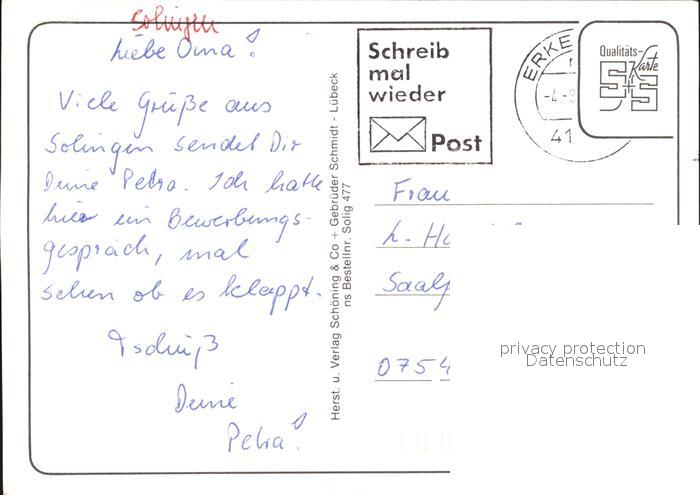 Solingen
Liebe Oma!
Viele Grüße aus
Solingen sendet Dir
Deine Petra. Ich hatte
hier ein Bewerbungs-
gespräch, mal
sehen ob es klappt.
Tschüß
Deine
Petra!
Herst. u. Verlag Schöning & Co + Gebrüder Schmidt - Lübeck
ns Bestellnr. Solig 477
Schreib
mal
wieder
Post
ERKE
-4.-9
41
Qualitäts-
Karte
S+S
Frau
L. Ho
Saalf
0754
privacy protection
Datenschutz